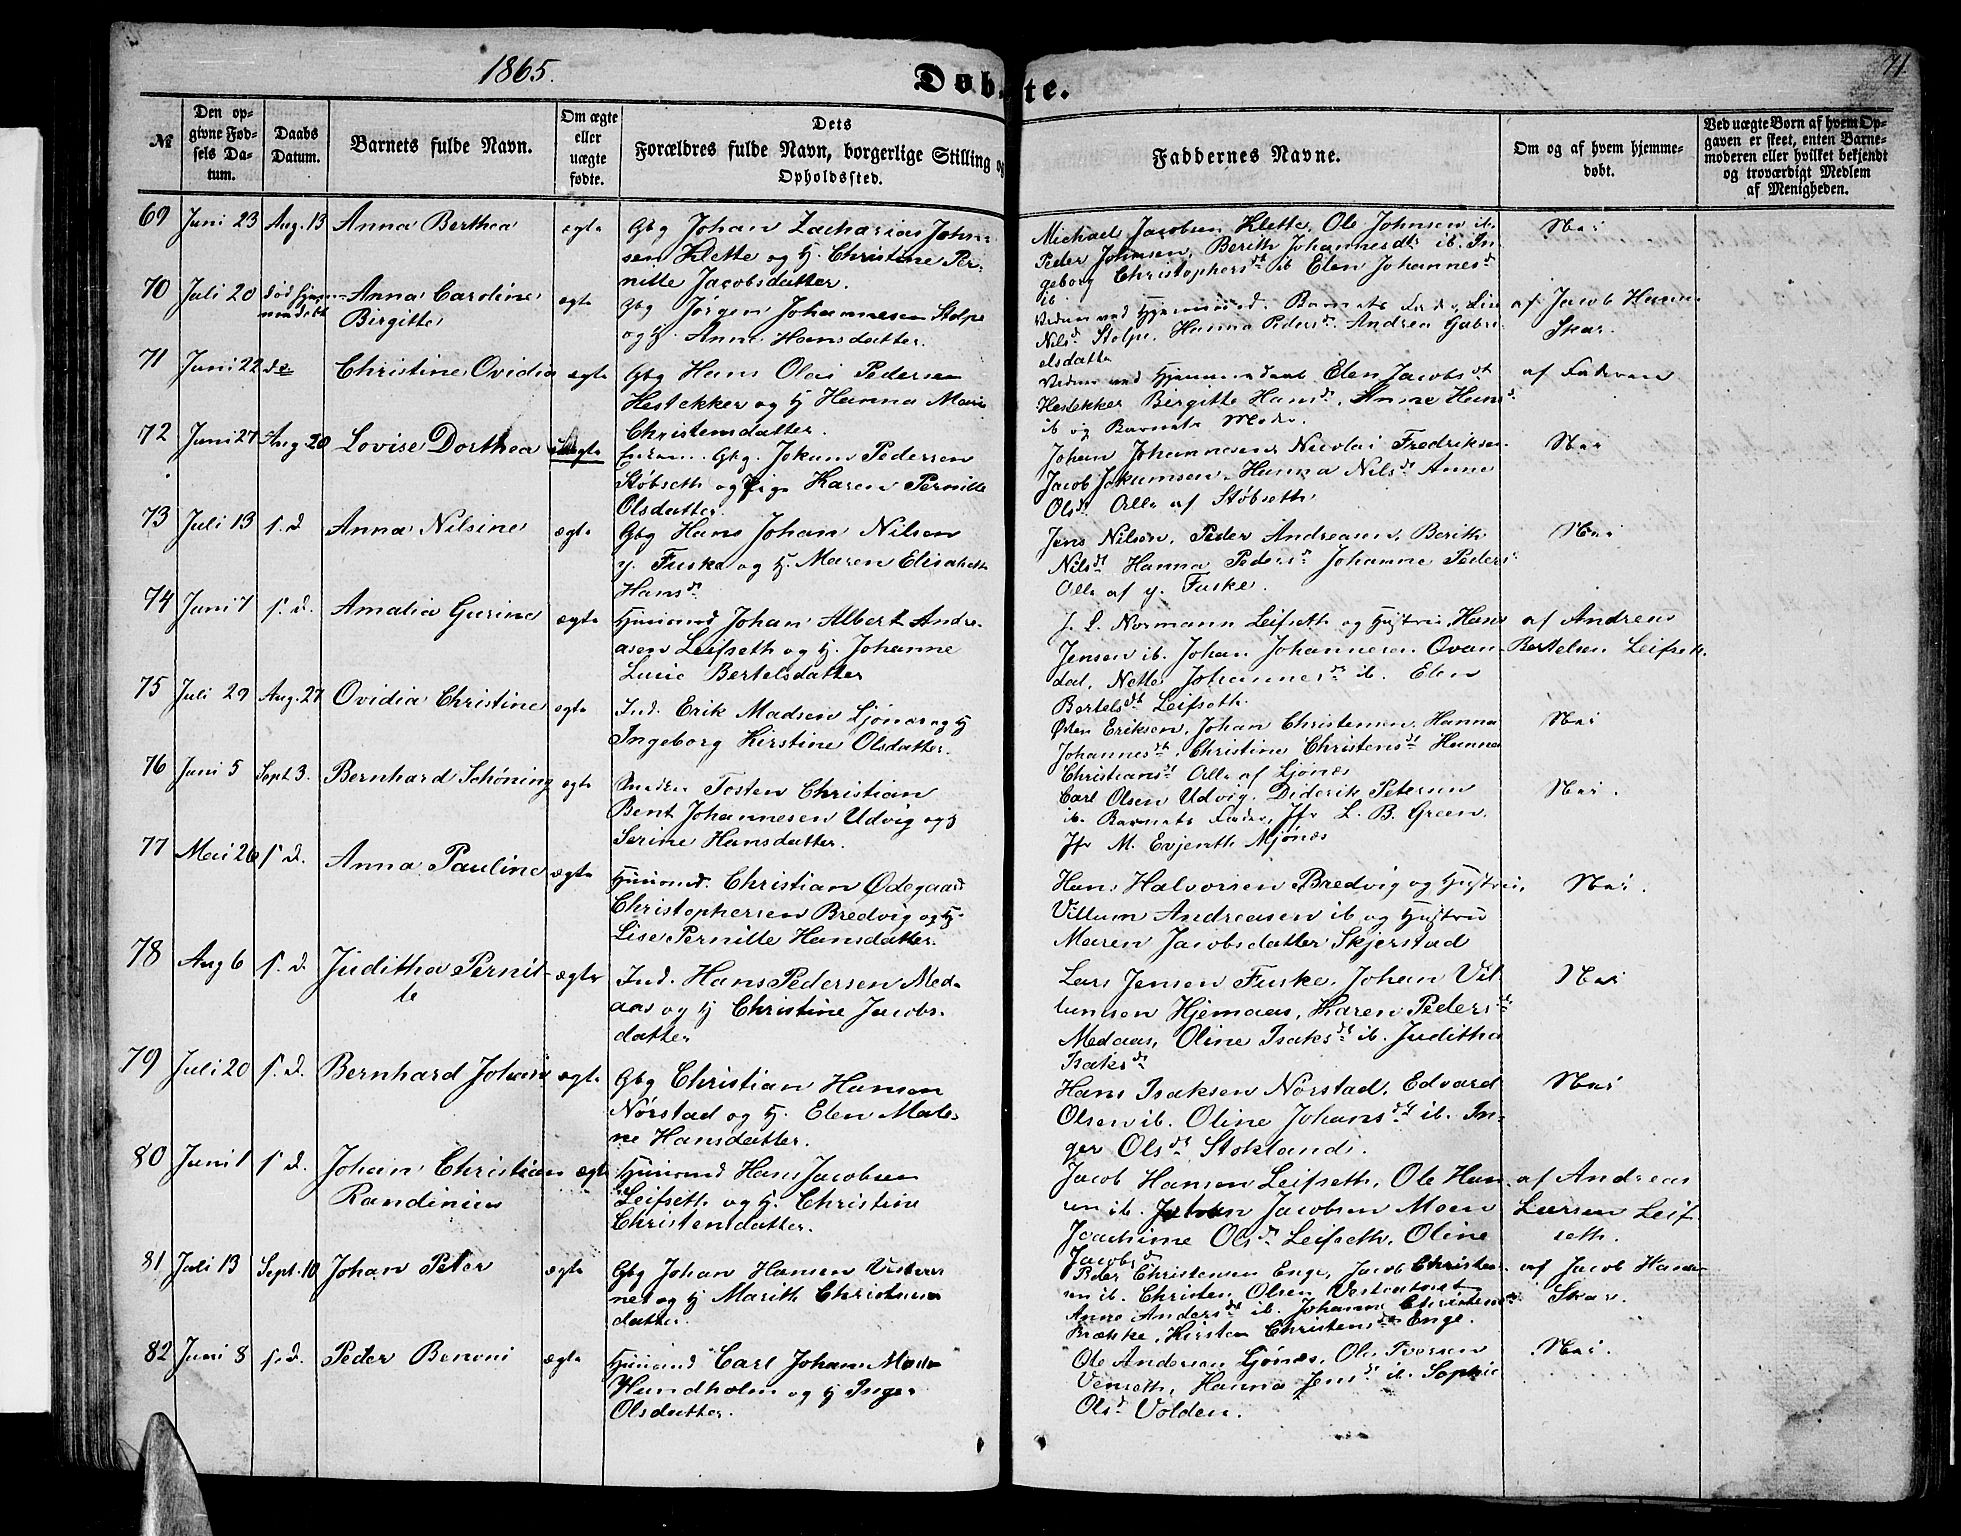 1865.
Døbte.
71
№
Den opgivne Fødsels Datum.
Daabs Datum.
Barnets fulde Navn.
Om ægte eller uægte fødte.
Dets
Forældres fulde Navn, borgerlige Stilling og
Opholdssted.
Faddernes Navne.
Om og af hvem hjemmedøbt.
Ved uægte Børn af hvem Opgaven er skeet, enten Barnemoderen eller hvilket bekjendt og troværdigt Medlem af Menigheden.
69 Juni 23 Aug. 13 Anna Berthea ægte
Gbg Johan Zacharias John-
sen Klette og H. Christine Per-
nille Jacobsdatter.
Michael Jacobsen Klette, Ole Johnsen ib.
Peder Johnsen, Berith Johannesdtr ib. In-
geborg Christophersdt ib Elen Johannesd
ib.
Nei
70 Juli 20 død hjem-
medøbt
Anna Caroline
Birgitte
ægte
Gbg Jørgen Johannesen Stolpe
og H. Anne Hansdatter.
Barnets Fader,
Nilsd Stolpe, Hanna Pedersd. Andrea Gabri-
elsdatter
af Jacob Hansen
Skar.
71 Juni 22 do Christine Ovidia ægte
Gbg Hans Olai Pedersen
Hestekker og H Hanna Marie
Christensdatter.
Elen Jacobsdt
Hestekker Bergitte Hansd. Anne Hansd.
ib og Barnets Moder.
af Faderen
72 Juni 27 Aug 20 Lovise Dorthea uægte
Enkem. Gbg. Jokum Pedersen
Støbseth og Pige Karen Pernille
Olsdatter.
Johan Johannesen, Nicolai Fredriksen
Jacob Jokumsen, Hanna Nilsdt Anne
Olsdt Alle af Støbseth
Nei
73 Juli 13 s. d Anna Nilsine ægte
Gbg Hans Johan Nilsen
y. Fuske og H. Maren Elisabeth
Hansdt
Jens Nilsen, Peder Andreasen, Berith
Nilsdt Hanna Pedersdt Johanne Peders
Alle af y. Fuske.
Nei
74 Juni 7 s. d. Amalia Gurine ægte
Husmand Johan Albert Andre-
asen Leifseth og H. Johanne
Lucie Bertelsdatter
J. L. Normann Leifseth og Hustru, Hans
Jensen ib. Johan Johannesen Ovan-
dal, Nette Johannesdt ib. Elen
Bertelsdt Leifseth.
af Andreas
Bertelsen Leifseth
75 Juli 29 Aug. 27 Ovidia Christine ægte
Ind. Erik Madsen Ljønæs og H
Ingeborg Kirstine Olsdatter.
Østen Eriksen, Johan Christensen, Hanna
Johannesdt, Christine Christensdt Hanna
Christiansdt Alle af Ljønæs
Nei
76 Juni 5 Sept 3. Bernhard Schøning ægte
Smeden Tosten Christian
Bent Johannesen Udvig og H
Serine Hansdatter.
Carl Olsen Udvig, Diderik Petersen
ib. Barnets Fader, Jfr L. B. Green,
Jfr M. Evjenth Mjønes
Nei.
77 Mai 26 s. d. Anna Pauline ægte
Husmand. Christian Ødegaard
Christophersen Bredvig og H.
Lise Pernille Hansdatter.
Hans Halvorsen Bredvig og Hustru,
Villum Andreasen ib og Hustru
Maren Jacobsdatter Skjerstad
Nei.
78 Aug 6 s. d Juditha Pernil-
le
ægte
Ind. Hans Pedersen Med-
aas og H Christine Jacobs-
datter
Lars Jensen Fuske, Johan Vil-
lumsen Hjemaas, Karen Pedersdt
Medaas, Oline Isaksdt ib. Juditha
Isaksdt
Nei
79 Juli 20 s. d. Bernhard Johan ægte
Gbg Christian Hansen
Nørstad og H. Elen Male-
ne Hansdatter.
Hans Isaksen Nørstad, Edvard
Olsen ib. Oline Johansdt ib. In-
ger Olsdt Stokland.
Nei
80 Juni 1 s d. Johan Christian
Randinius
ægte
Husmand Hans Jacobsen
Leifseth og H. Christine
Christensdatter.
Jacob Hansen Leifseth, Ole Han-
sen ib. Johan Jacobsen Moen
Joachime Olsdt Leifseth, Oline
Jacobsdt
af Andreas
Larsen Leif-
seth.
81 Juli 13 Sept. 10 Johan Peter ægte
Gbg Johan Hansen Vester
og H Marith Christens
datter.
Peder Christensen Enge, Jacob Christen-
sen ib. Christen Olsen
Anne Andersdt ib. Johanne Christensdt
Brække, Kirsten Christensdt Enge.
af Jacob Hansen
Skar.
82 Juni 8 s. d. Peder Benoni ægte
Husmand Carl Johan Mads
Hundholm og H Inger
Olsdatter.
Ole Andersen Ljønæs, Ole Iversen
Venseth, Hanna Jensdt ib. Sophie
Olsdt Volden.
Nei.